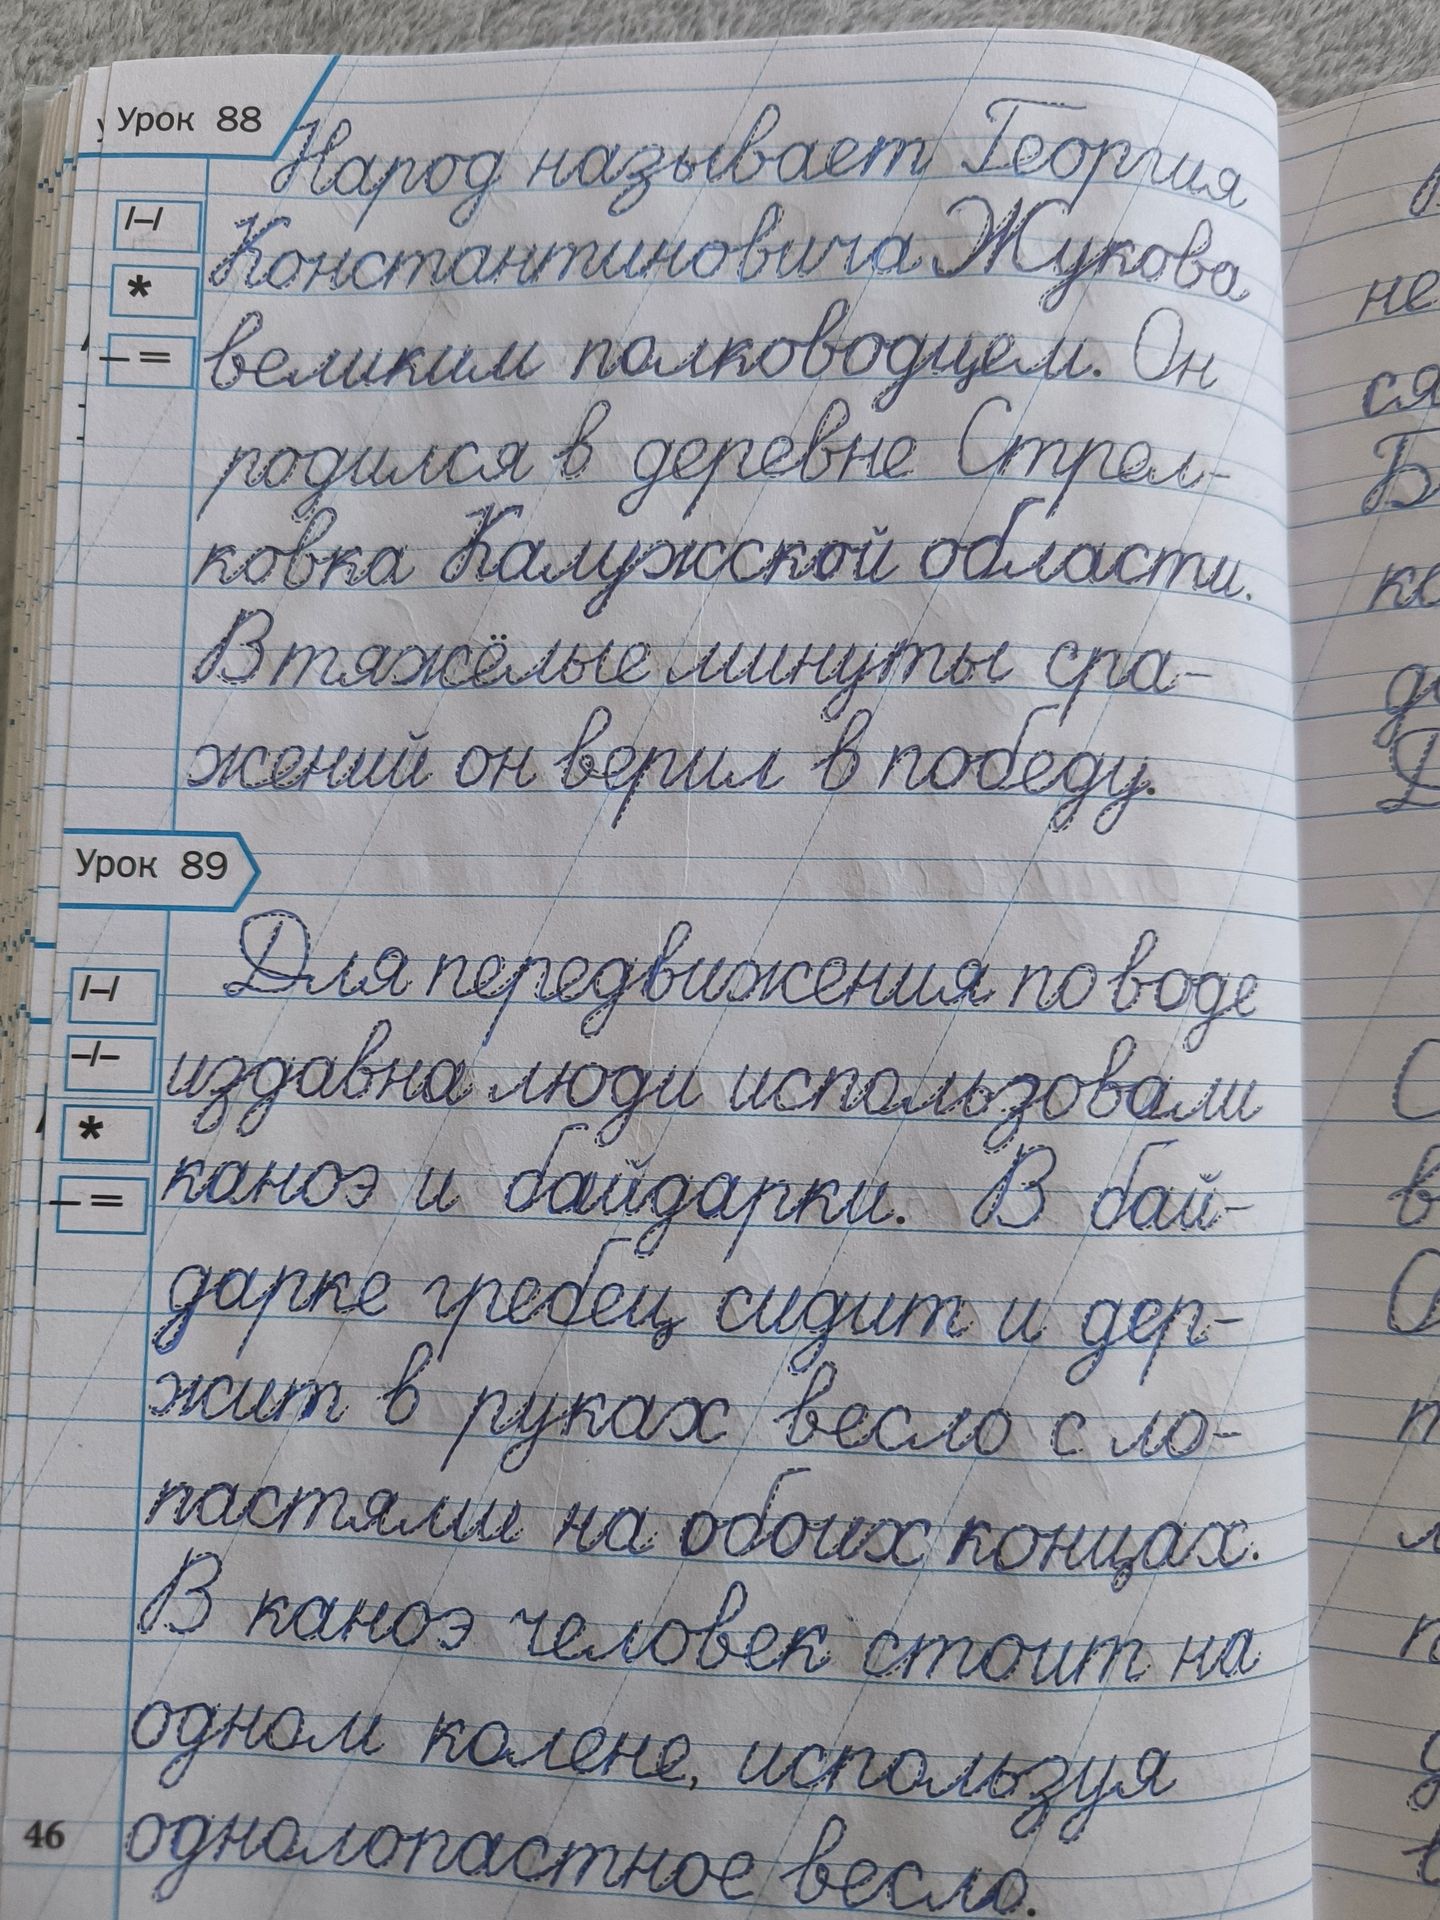 Урок 88
Народ называет Георгия
/–/
Константиновича Жукова
*
великим полководцем. Он
– =
родился в деревне Стрел-
ковка Калужской области.
В тяжёлые минуты сра-
жений он верил в победу.
Урок 89
Для передвижения по воде
/–/
издавна люди использовали
–/–
*
каноэ и байдарки. В бай-
– =
дарке гребец сидит и дер-
жит в руках весло с ло-
пастями на обоих концах.
В каноэ человек стоит на
одном колене, используя
однолопастное весло.
46
не
ся